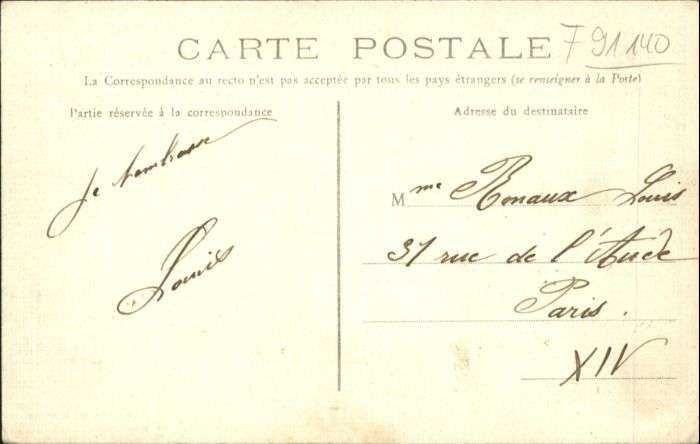 CARTE POSTALE
F 91140
La Correspondance au recto n'est pas acceptée par tous les pays étrangers (se renseigner à la Poste)
Partie réservée à la correspondance
Je t'embrasse
Louis
Adresse du destinataire
Mme Ronaux Louis
31 rue de l'Aude
Paris.
XIV